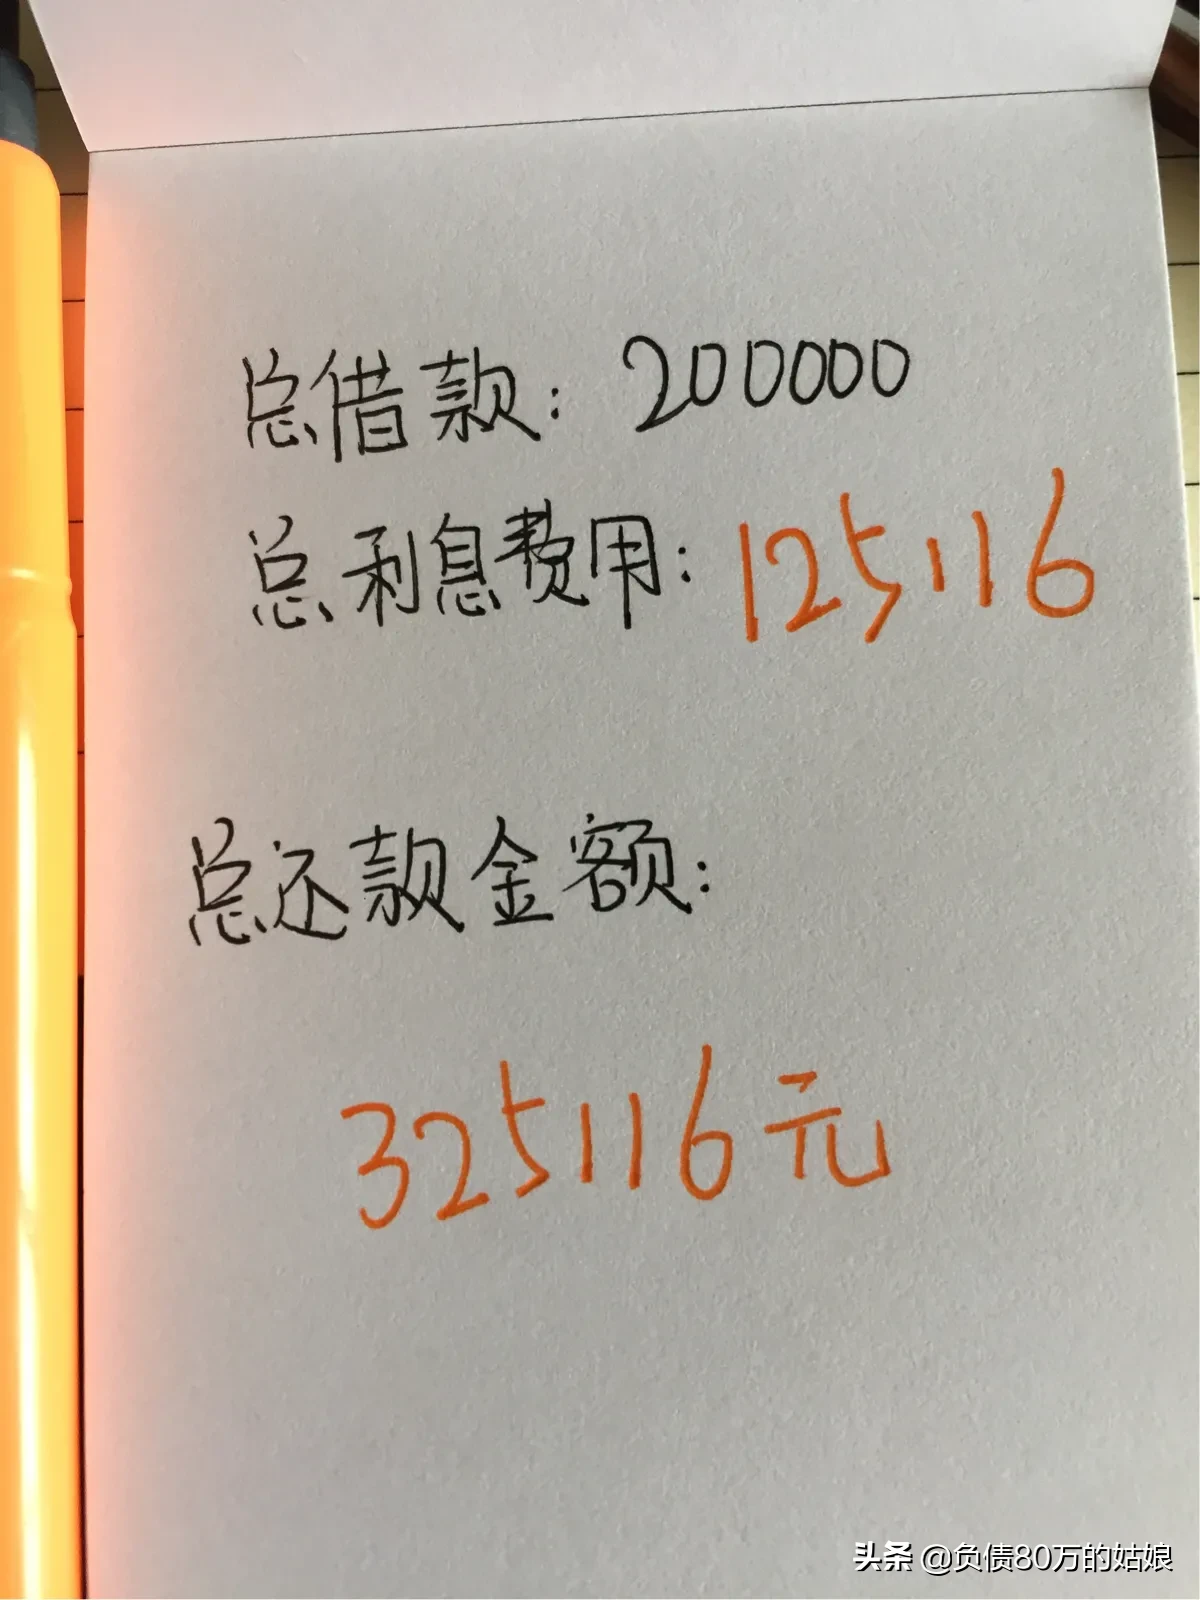 总借款：200000
总利息费用：125116
总还款金额：
325116元
头条 @负债80万的姑娘